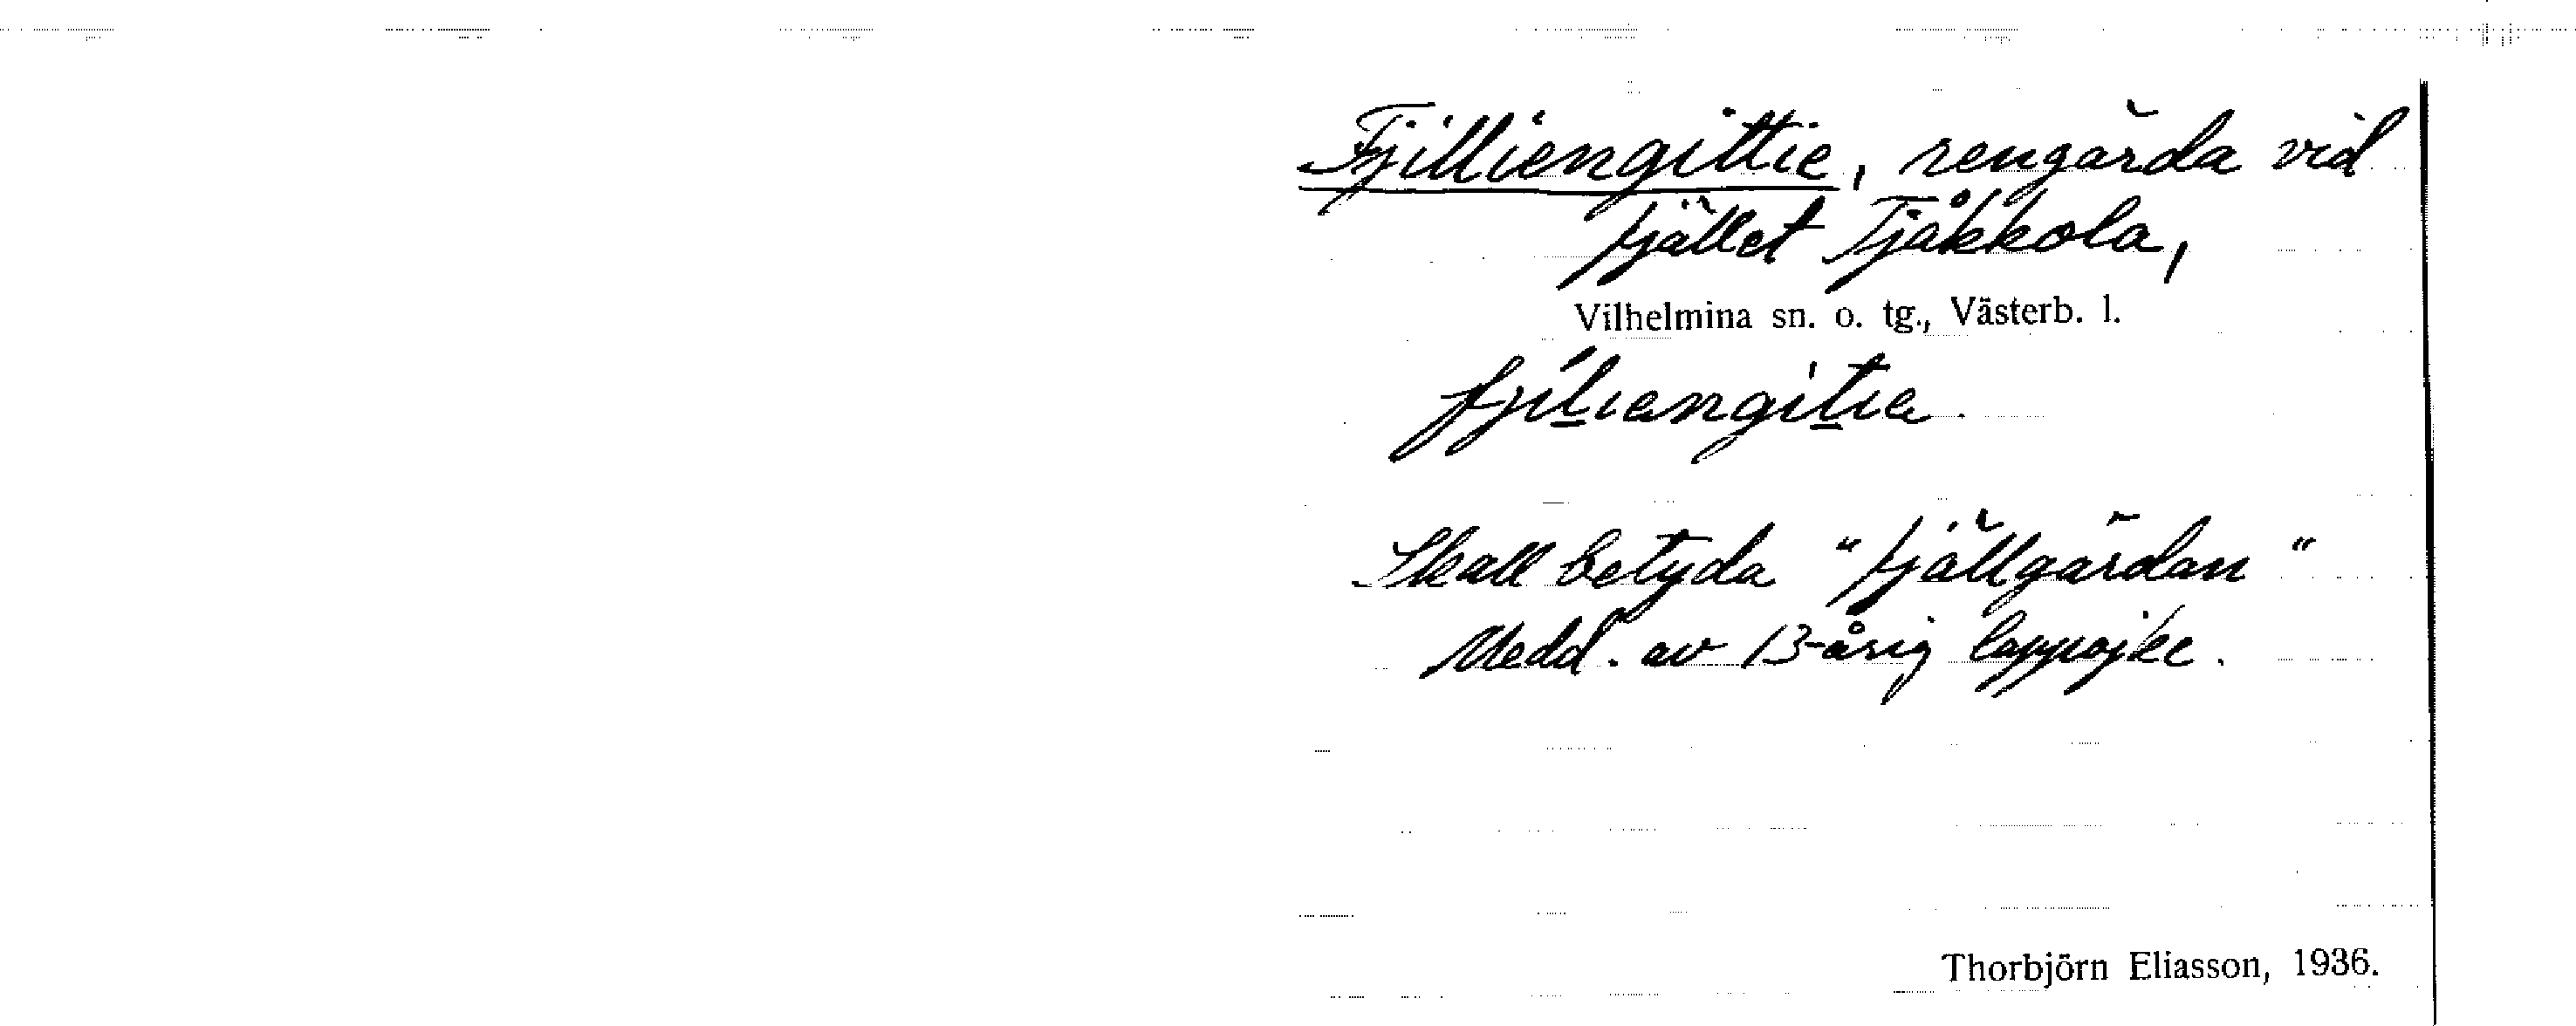 Fjilliengittie, rengärda vid
fjället Tjåkkola,
Vilhelmina sn. o. tg., Västerb. l.
Skall betyda "fjällgärdan"
Medd. av 13-årig lappojke.
Thorbjörn Eliasson, 1936.